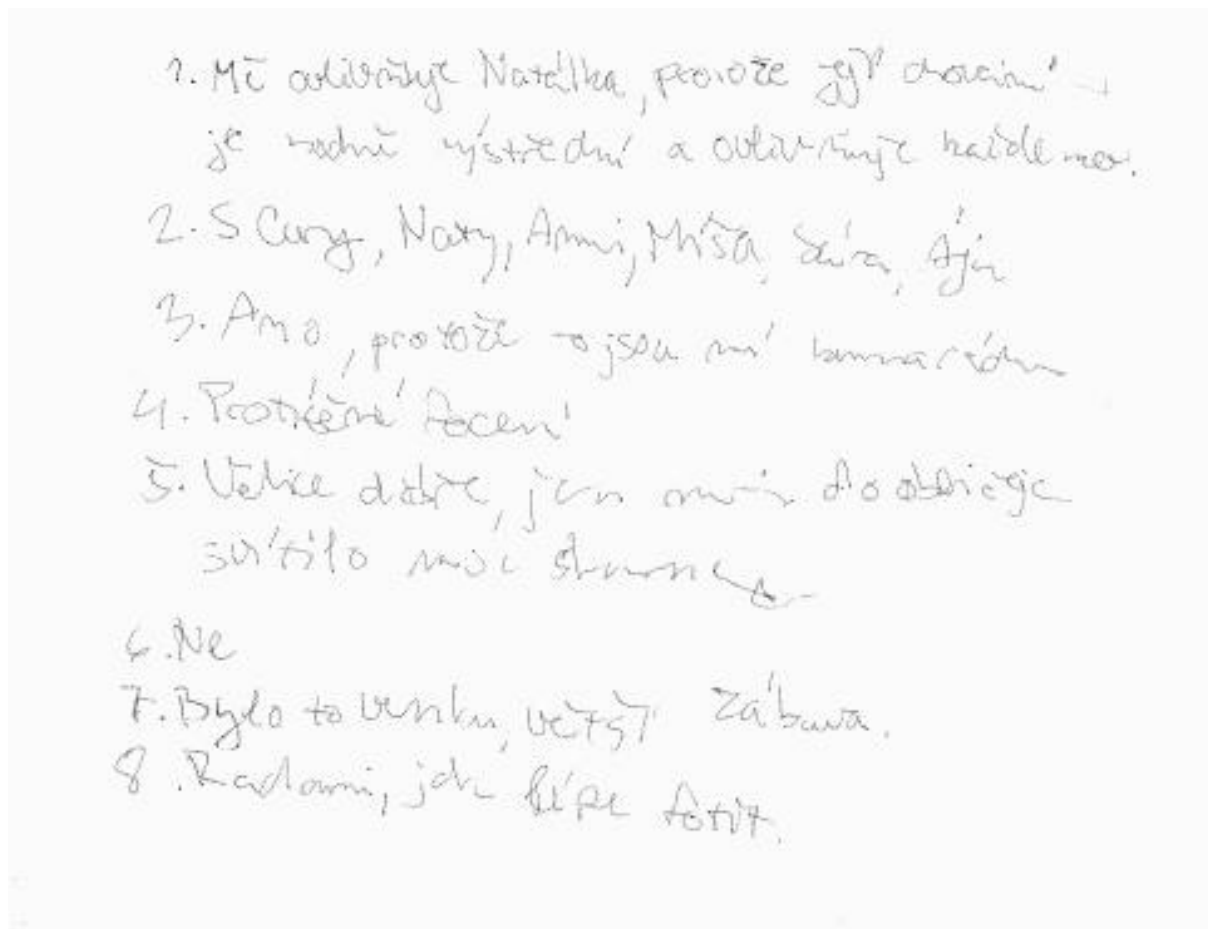 1. Mě ovlivňuje Natálka, protože její chování
je hodně výstřední a ovlivňuje každého.
2. S Cury, Naty, Anni, Míša, Sára, Ája
3. Ano, protože to jsou mí kamarádi
4. Focení
5. Velice dobře, jen mi do obličeje
svítilo moc slunce
6. Ne
7. Bylo to venku, větší zábava.
8. Radami, jak lépe fotit.